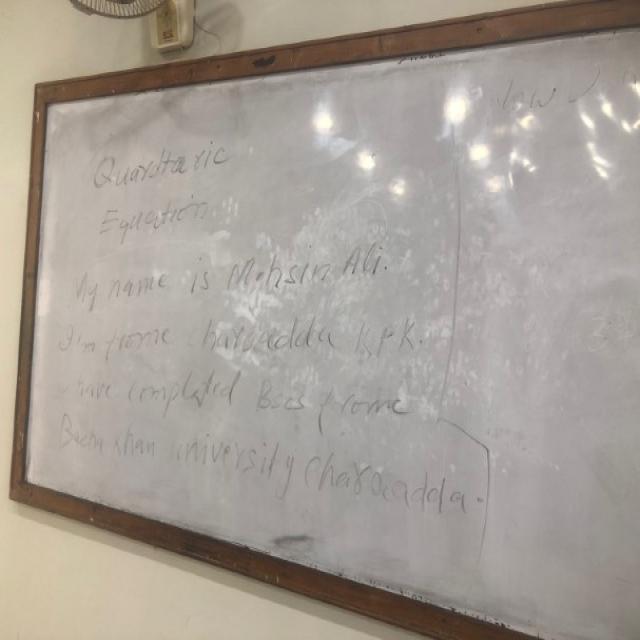 Quardtaric
Equection
My name is Mohsin Ali.
I'm frome Charsadda K.P.K.
I have completed Bcs frome
Bacha khan university Charsadda.
law